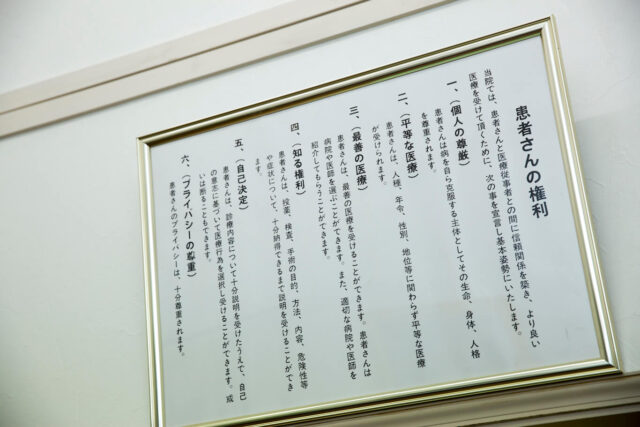 患者さんの権利
当院では、患者さんと医療従事者との間に信頼関係を築き、より良い
医療を受けて頂くために、次の事を宣言し基本姿勢にいたします。
一、（個人の尊厳）
患者さんは病を自ら克服する主体としてその生命、身体、人格
を尊重されます。
二、（平等な医療）
患者さんは、人種、年令、性別、地位等に関わらず平等な医療
が受けられます。
三、（最善の医療）
患者さんは、最善の医療を受けることができます。患者さんは
病院や医師を選ぶことができます。また、適切な病院や医師を
紹介してもらうことができます。
四、（知る権利）
患者さんは、投薬、検査、手術の目的、方法、内容、危険性等
や症状について、十分納得できるまで説明を受けることができ
ます。
五、（自己決定）
患者さんは、診療内容について十分説明を受けたうえで、自己
の意志に基づいて医療行為を選択し受けることができます。或
いは断ることもできます。
六、（プライバシーの尊重）
患者さんのプライバシーは、十分尊重されます。